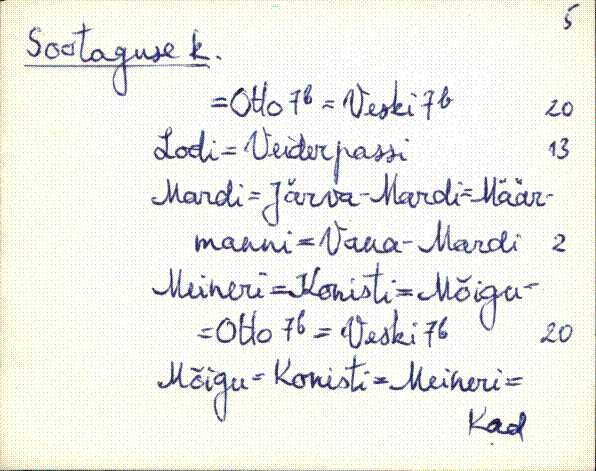 5
Sootaguse k.
=Otto 7b = Veski 7b 20
Lodi = Veiderpassi 13
Mardi = Järva-Mardi = Määr-
manni = Vana-Mardi 2
Meineri = Konisti = Mõigu-
=Otto 7b = Veski 7b 20
Mõigu = Konisti = Meineri =
Kad